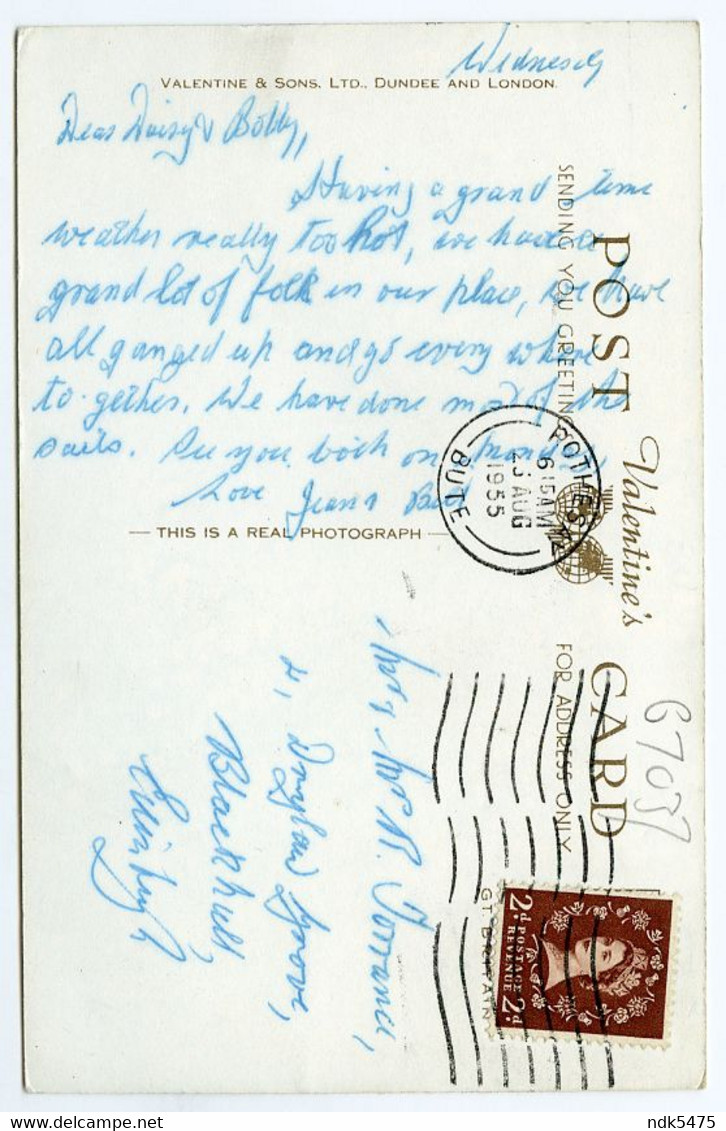 Wednesdy
VALENTINE & SONS. LTD., DUNDEE AND LONDON.
Dear Daisy & Bobby,
Having a grand time
weather really too hot, we have a
grand lot of folk in our place, we have
all ganged up and go every where
to-gether. We have done most of the
sails. See you both on Monday,
Love Jean &
— THIS IS A REAL PHOTOGRAPH —
POST CARD
Valentine's
SENDING YOU GREETINGS
FOR ADDRESS ONLY
GT. BRITAIN
ROTHESAY
615AM
AUG
1955
BUTE
Mr & Mrs R. Torrance,
Grove,
Blackhall
Edinburgh
67037
2d. POSTAGE REVENUE 2d
ndk5475